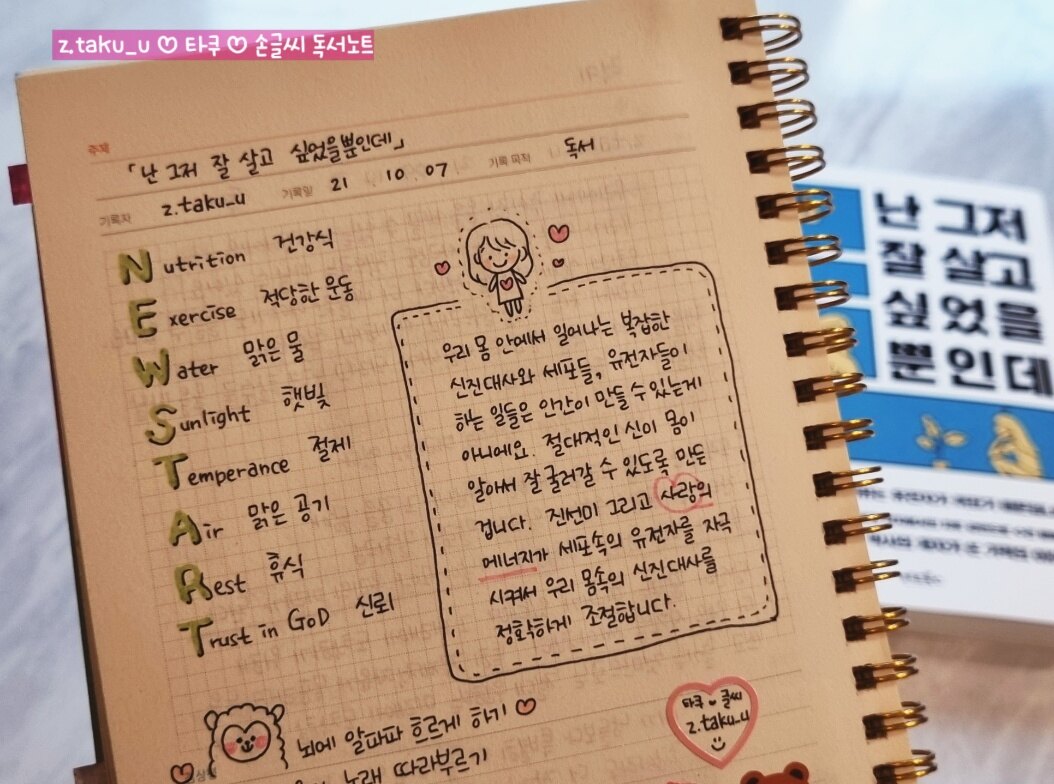 z.taku_u ♡ 타쿠 ♡ 손글씨 독서노트
주제
「난 그저 잘 살고 싶었을뿐인데」
기록자 z.taku_u 기록일 21 10 07 기록 목적 독서
Nutrition 건강식
Exercise 적당한 운동
Water 맑은 물
Sunlight 햇빛
Temperance 절제
Air 맑은 공기
Rest 휴식
Trust in GoD 신뢰
우리 몸 안에서 일어나는 복잡한
신진대사와 세포들, 유전자들이
하는 일들은 인간이 만들 수 있는게
아니에요. 절대적인 신이 몸이
알아서 잘 굴러갈 수 있도록 만든
겁니다. 진선미 그리고 사랑의
에너지가 세포속의 유전자를 자극
시켜서 우리 몸속의 신진대사를
정확하게 조절합니다.
뇌에 알파파 흐르게 하기 ♡
노래 따라부르기
타쿠 글씨
z.taku_u
난 그저
잘 살고
싶었을
뿐인데